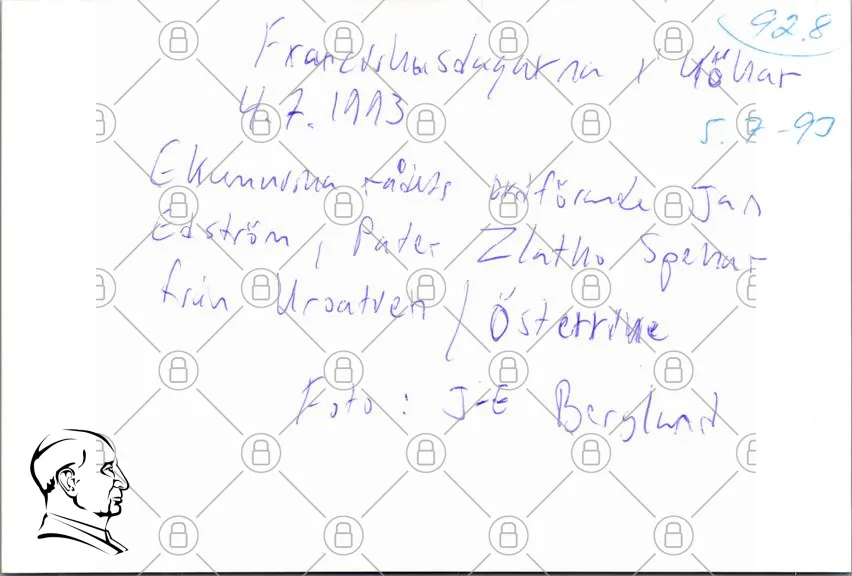 92.8
Franciskusdagarna i Kökar
4.7.1993
5.7-93
Ekumeniska rådets ordförande Jan
Edström, Pater Zlatko Spehar
från Kroatien / Österrike
Foto: J-E Berglund